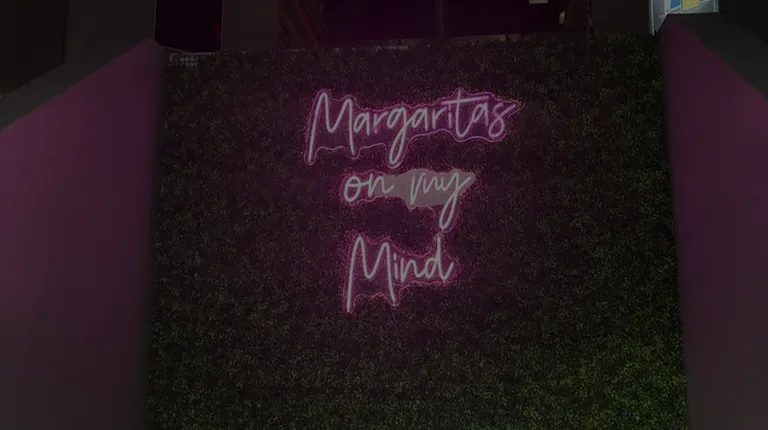 Margaritas
on my
Mind